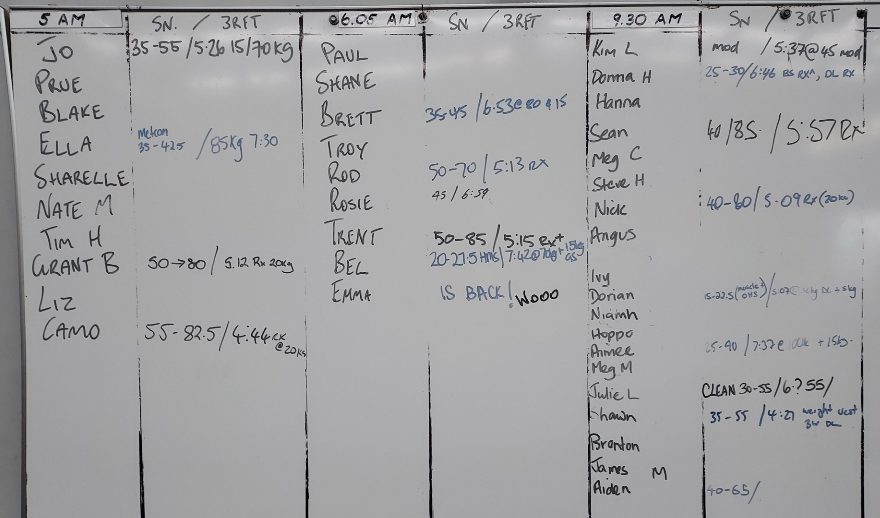 5 AM SN. / 3RFT
JO 35-55/5.26 15/70kg
PRUE
BLAKE
ELLA Metcon 35-42.5 / 85kg 7:30
SHARELLE
NATE M
TIM H
GRANT B 50→80 / 5.12 Rx 20kg
LIZ
CAMO 55-82.5/4:44 RX @20kg
6.05 AM SN / 3RFT
PAUL
SHANE
BRETT 35-45 / 6.53@80 & 15
TROY
ROD 50-70 / 5:13 RX
ROSIE 45 / 6:59
TRENT 50-85 / 5:15 Rx+
BEL 20-27.5 HMS / 7:42@70kg +15kg
EMMA IS BACK! WOOO
9.30 AM SN / 3RFT
Kim L mod / 5:37@45 mod
Donna H 25-30/6:46 BS RX^, DL RX
Hanna
Sean 40/85 / 5:57 RX
Meg C
Steve H
Nick 40-80/5.09 Rx (20kg)
Angus
Ivy
Dorian 15-22.5 (muscle + OHS) / DL +5kg
Niamh
Hoppo
Aimee 25-40 / 7:37@ +15kg
Meg M
Julie L CLEAN 30-55/6.? 55/
Shawn 35-55 / 4:27 weight vest DL
Brenton
James M
Aiden 40-65/